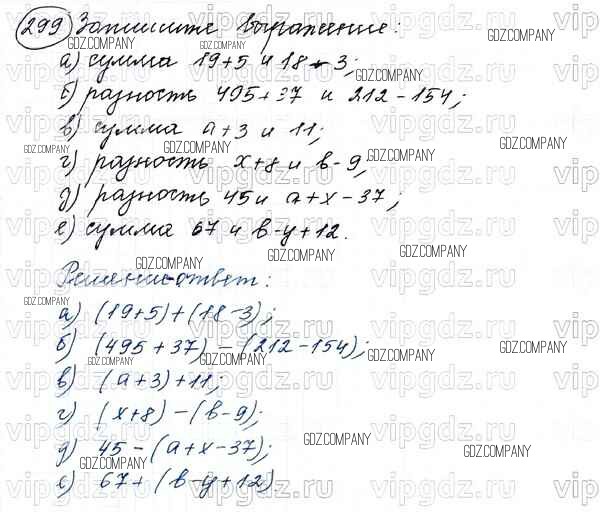 299 Запишите выражение:
а) сумма 19+5 и 18-3;
б) разность 495+37 и 212-154;
в) сумма а+3 и 11;
г) разность х+8 и в-9;
д) разность 45 и а+х-37;
е) сумма 67 и в-у+12.
Решение-ответ:
а) (19+5)+(18-3);
б) (495+37)-(212-154);
в) (а+3)+11;
г) (х+8)-(в-9);
д) 45-(а+х-37);
е) 67+(в-у+12)
GDZ.COMPANY
vipgdz.ru